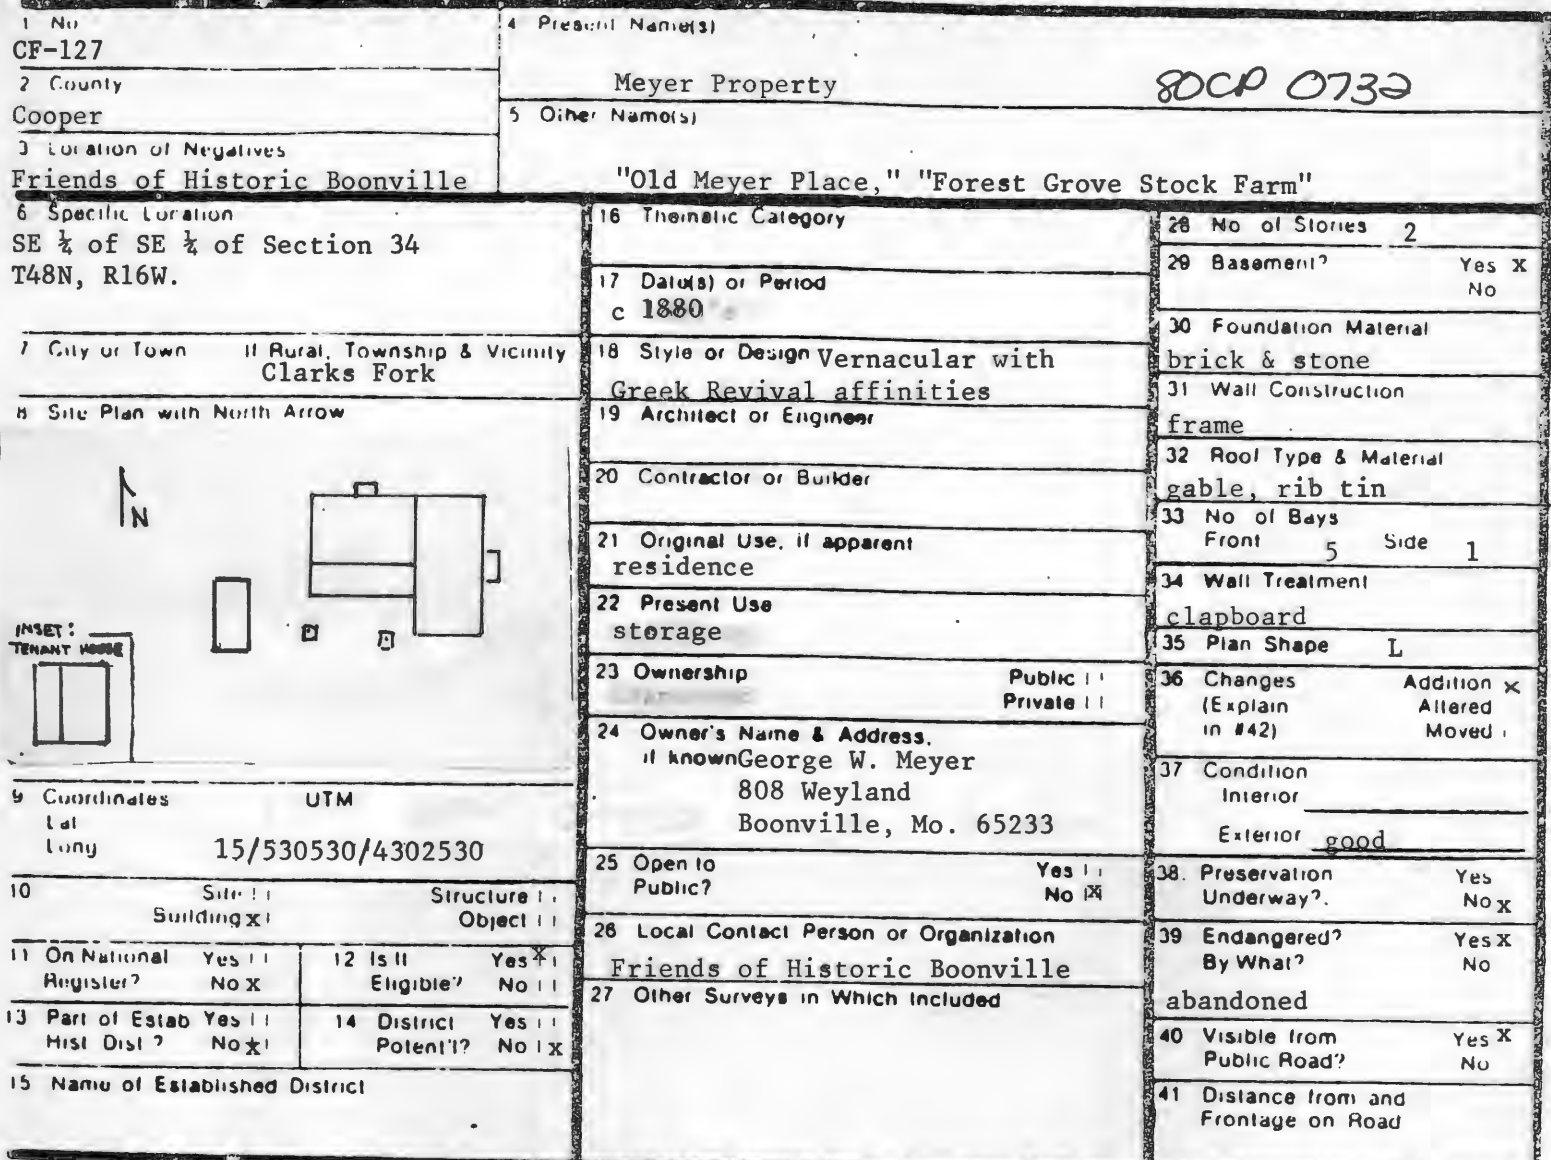 1 No
CF-127
2 County
Cooper
3 Location of Negatives
Friends of Historic Boonville
4 Present Name(s)
Meyer Property
80CP 0732
5 Other Name(s)
"Old Meyer Place," "Forest Grove Stock Farm"
6 Specific Location
SE ¼ of SE ¼ of Section 34
T48N, R16W.
7 City or Town If Rural, Township & Vicinity
Clarks Fork
8 Site Plan with North Arrow
N
INSET:
TENANT HOUSE
9 Coordinates UTM
Lat
Long 15/530530/4302530
10 Site Structure
Building x Object
11 On National Yes
Register? No X
12 Is It Yes X
Eligible? No
13 Part of Estab Yes
Hist Dist? No x
14 District Yes
Potent'l? No x
15 Name of Established District
16 Thematic Category
17 Date(s) or Period
c 1880
18 Style or Design Vernacular with
Greek Revival affinities
19 Architect or Engineer
20 Contractor or Builder
21 Original Use, if apparent
residence
22 Present Use
storage
23 Ownership Public
Private
24 Owner's Name & Address,
if known George W. Meyer
808 Weyland
Boonville, Mo. 65233
25 Open to Yes
Public? No X
26 Local Contact Person or Organization
Friends of Historic Boonville
27 Other Surveys in Which Included
28 No of Stories 2
29 Basement? Yes X
No
30 Foundation Material
brick & stone
31 Wall Construction
frame
32 Roof Type & Material
gable, rib tin
33 No of Bays
Front 5 Side 1
34 Wall Treatment
clapboard
35 Plan Shape L
36 Changes Addition x
(Explain Altered
in #42) Moved
37 Condition
Interior
Exterior good
38. Preservation Yes
Underway? No x
39 Endangered? Yes X
By What? No
abandoned
40 Visible from Yes X
Public Road? No
41 Distance from and
Frontage on Road